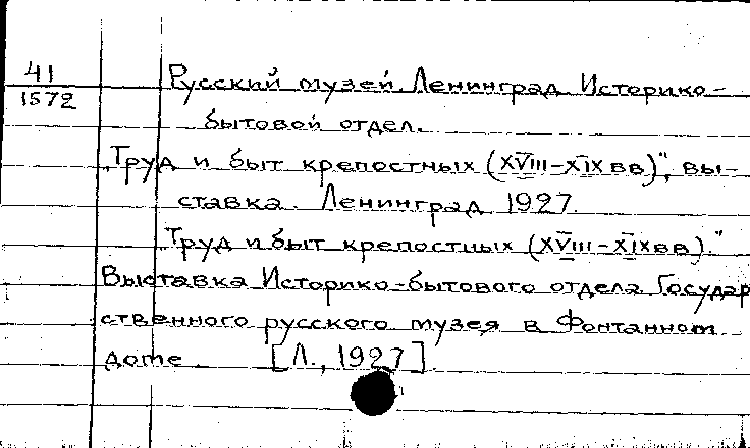 41
1572
Русский музей. Ленинград. Историко-
бытовой отдел.
„Труд и быт крепостных (XVIII–XIX вв)", вы-
ставка. Ленинград 1927.
„Труд и быт крепостных (XVIII–XIX вв)."
Выставка Историко-бытового отдела Государ
ственного русского музея в Фонтанном
доме. [Л., 1927]